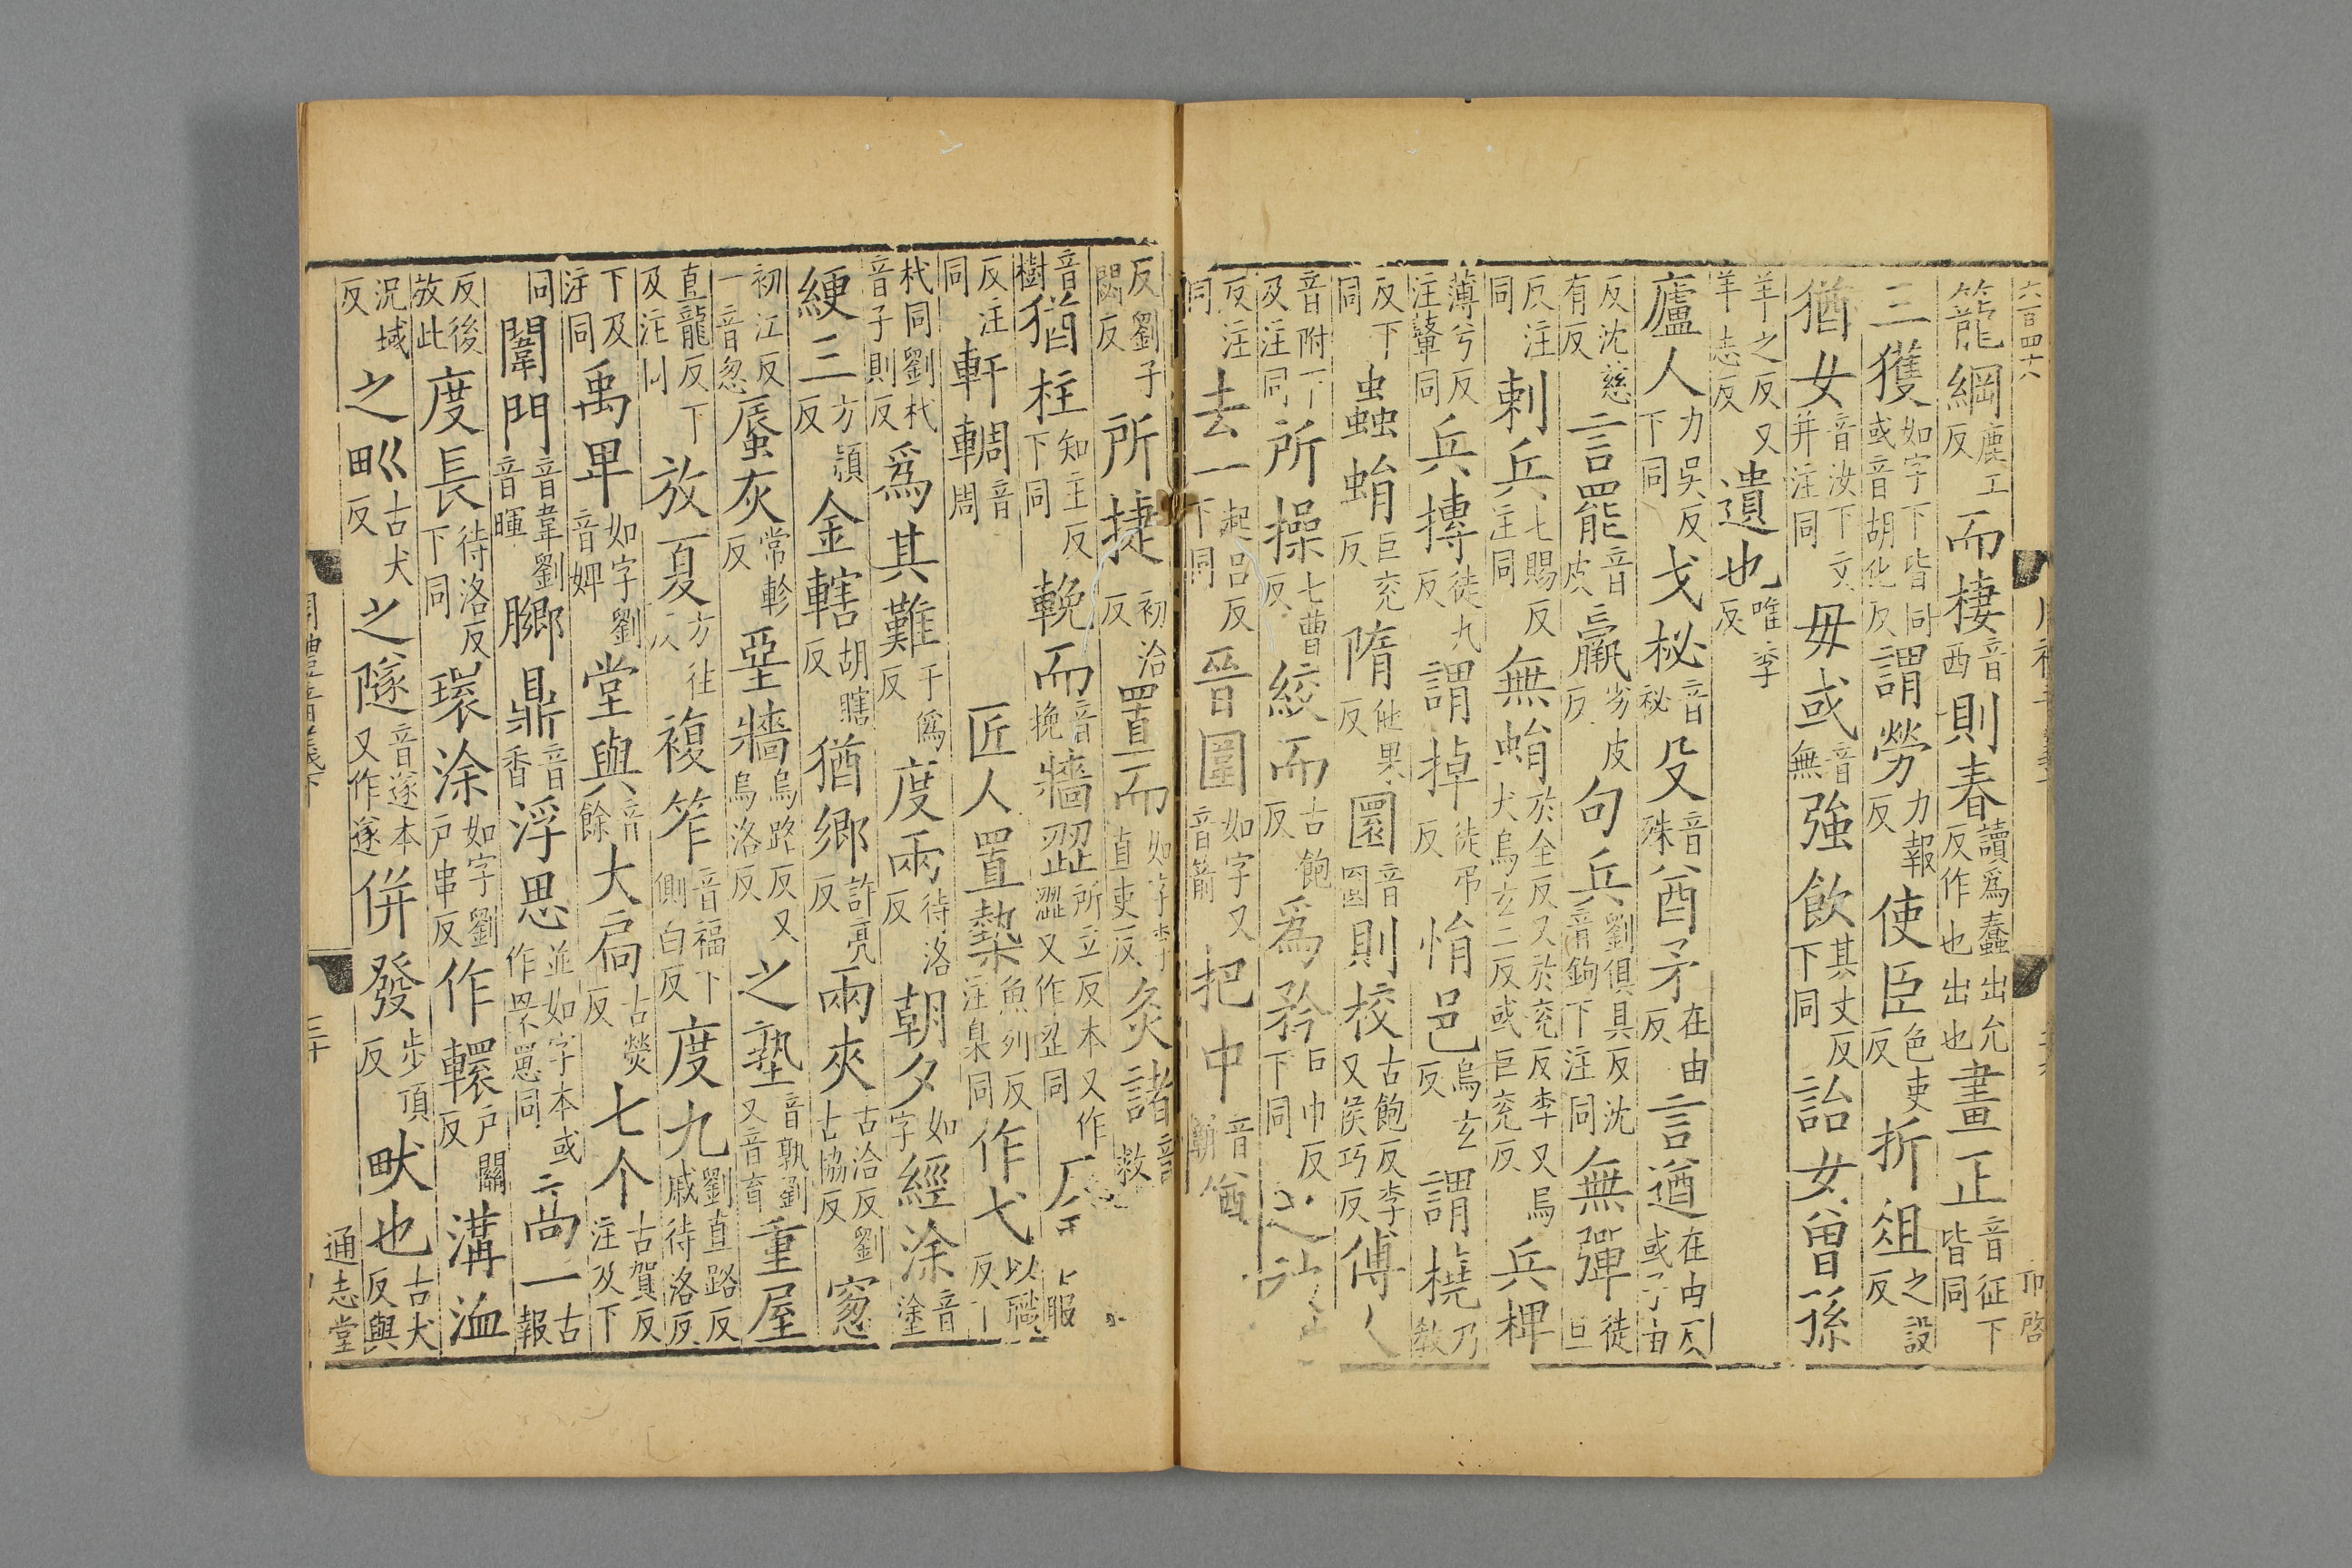 六百四十八
籠綱鹿工反而棲音西則春讀爲蠢出允反作也出也畫正音征下皆同
三獲如字下皆同或音胡化反謂勞力報反使臣色吏反折俎之設反
猶女音汝下文并注同毋或音無強飲其丈反下同詒女曾孫
羊之反又羊志反遺也唯季反
廬人力吳反下同戈柲音祕殳音殊八酋矛在由反言遒在由反或子由
反沈慈有反言罷音皮羸劣皮反句兵劉俱具反沈音鉤下注同無彈徒旦
反注同刺兵七賜反注同無蜎於全反又於兗反李又烏犬烏玄二反或巨兗反兵椑
薄兮反注鼙同兵摶徒九反謂掉徒弔反悁邑烏玄反謂橈乃教
反下同蟲蜎巨兗反隋他果反圜音圓則校古飽反李又侯巧反傅人
音附下及注同所操七曹反絞而古飽反爲矜巨巾反下同之
反注同去一起呂反下同晉圍如字又音箭把中音猶
反劉子閤反所捷初洽反置而如字李直吏反灸諸音救
音樹猶柱知主反下同輓而音挽牆澀所立反本又作澀又作歰同
反注同軒輖音周匠人置槷魚列反注臬同作弋以職反
杙同劉杙音子則反爲其難于僞反度兩待洛反朝夕如字經涂音塗
綆三方穎反金轄胡瞎反猶鄉許亮反兩夾古洽反劉古協反窻
初江反一音忽蜃灰常軫反堊牆烏路反又烏洛反之塾音孰劉又音育重屋
直龍反下及注同放夏方往反複笮音福下側白反度九劉直路反戚待洛反
下及注同禹卑如字劉音婢堂與音餘大扃古熒反七个古賀反注及下
同闈門音韋劉音暉膷鼎音香浮思並如字本或作罘罳同上尚一古報
反後放此度長待洛反下同環涂如字劉戶串反作轘戶關反溝洫
況域反之甽古犬反之隧音遂本又作遂併發步頂反畎也古犬反與
通志堂